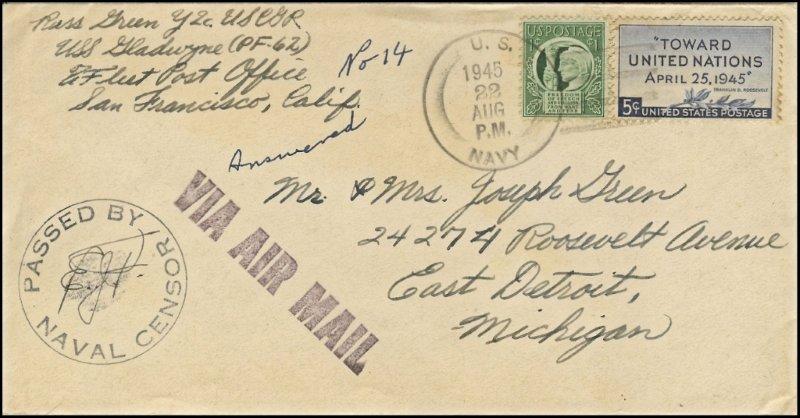 Russ Green Y2c. USCGR
USS Gladwyne (PF-62)
℅ Fleet Post Office
San Francisco, Calif.
No 14
Answered
U. S.
1945
22
AUG
P.M.
NAVY
US POSTAGE
1¢ 1
"TOWARD
UNITED NATIONS
APRIL 25, 1945"
FRANKLIN D. ROOSEVELT
5¢ UNITED STATES POSTAGE
VIA AIR MAIL
Mr. & Mrs. Joseph Green
24274 Roosevelt Avenue
East Detroit,
Michigan
PASSED BY
NAVAL CENSOR